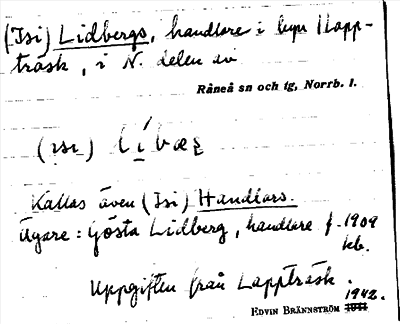 (Isi) Lidbergs, handlare i byn Lapp-
träsk, i N. delen av
Råneå sn och tg, Norrb. l.
(ɪsɪ)
Kallas även (Isi) Handlars.
Ägare: Gösta Lidberg, handlare f. 1909
Uppgiften från Lappträsk.
1942.
EDVIN BRÄNNSTRÖM 1941